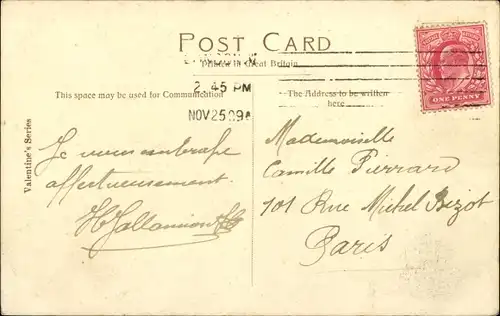 POST CARD
Printed in Great Britain
2.45 PM
NOV 25 09
This space may be used for Communication
The Address to be written
here
ONE PENNY
Valentine's Series
Je vous embrasse
affectueusement.
Mademoiselle
Camille Pierrard
101 Rue Michel Bizot
Paris